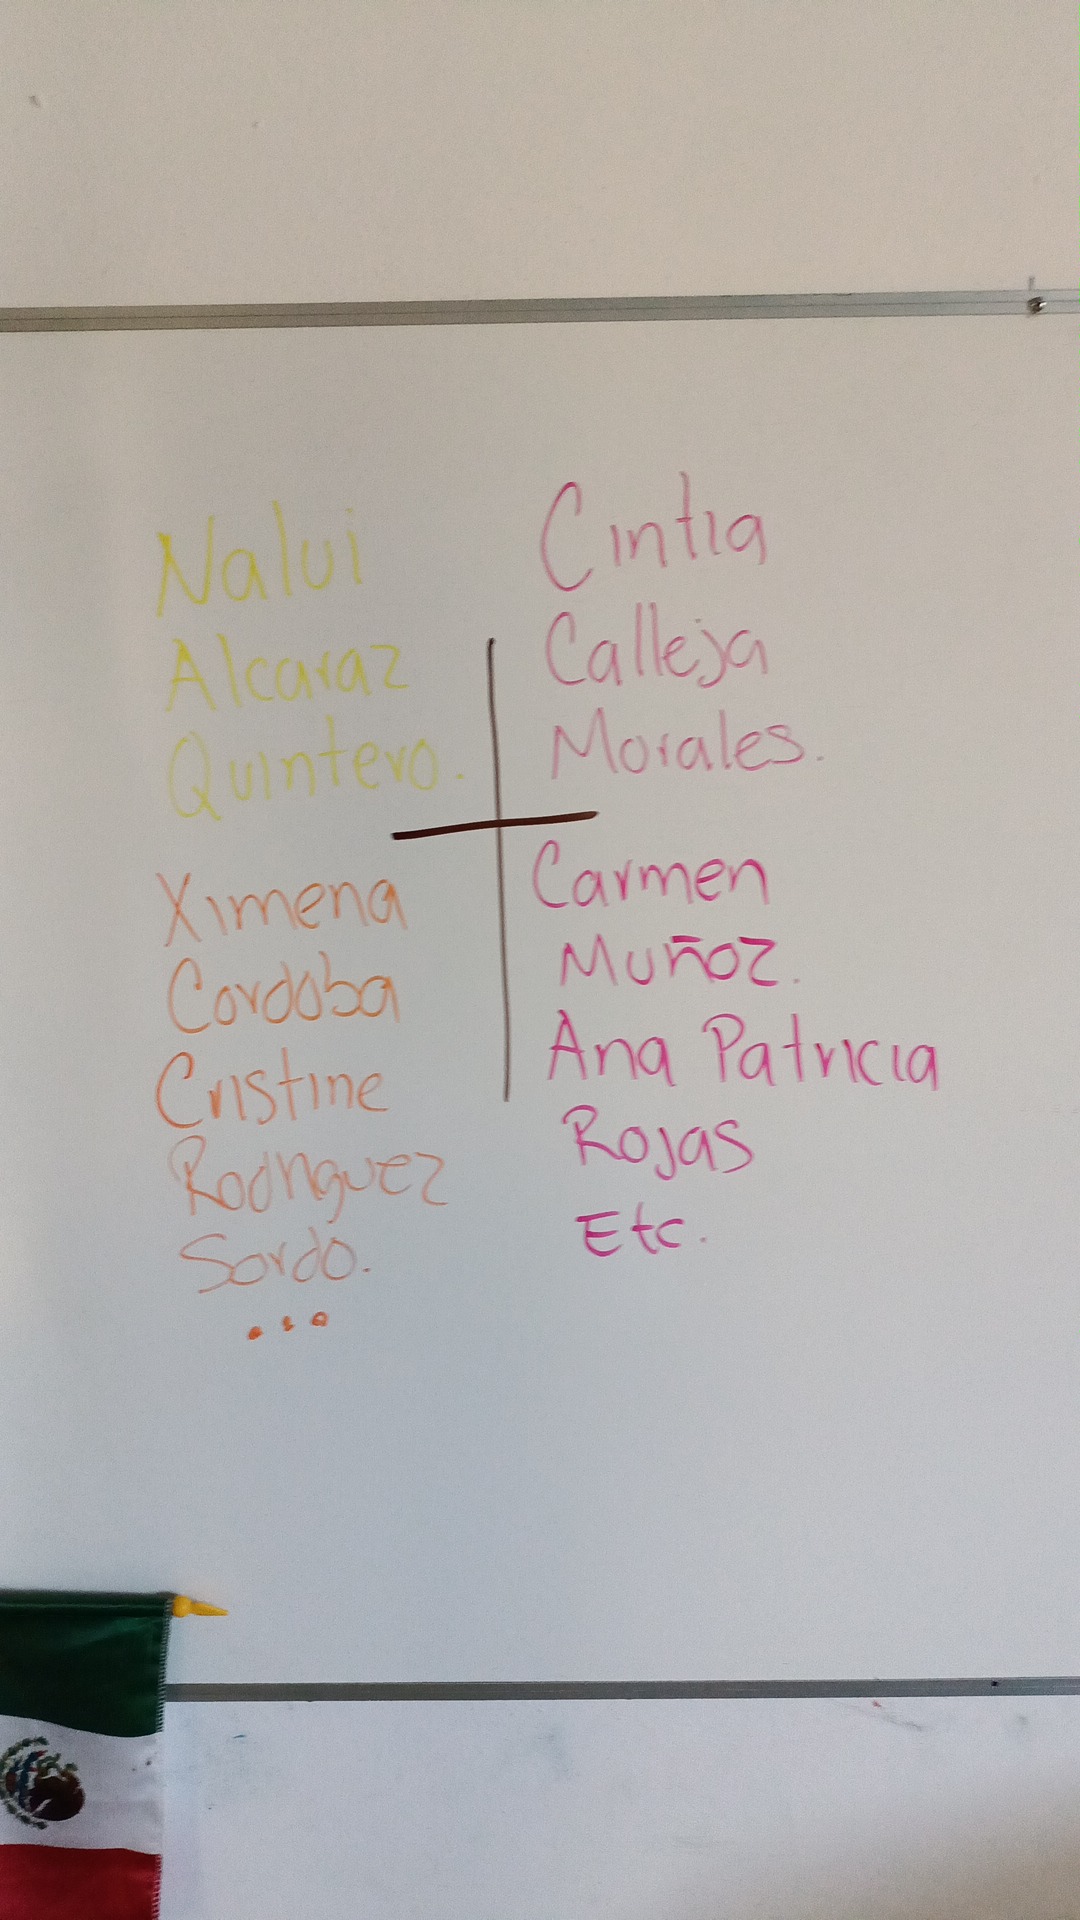 Nalui
Alcaraz
Quintero.
Cintia
Calleja
Morales.
Ximena
Cordoba
Cristine
Rodriguez
Sordo.
...
Carmen
Muñoz.
Ana Patricia
Rojas
Etc.